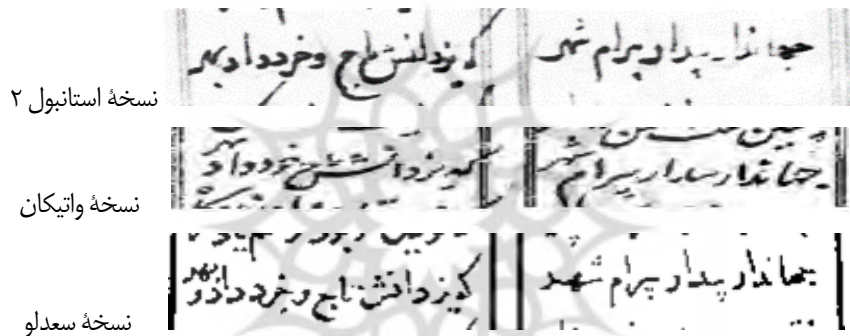 جهاندار بیدار شهر که یزدانش تاج و خرد داد بهر
نسخهٔ استانبول ۲
جهاندار بیدار شهر که یزدانش خرد داد بهر
نسخهٔ واتیکان
جهاندار بیدار که یزدانش تاج و خرد داد بهر
نسخهٔ سعدلو